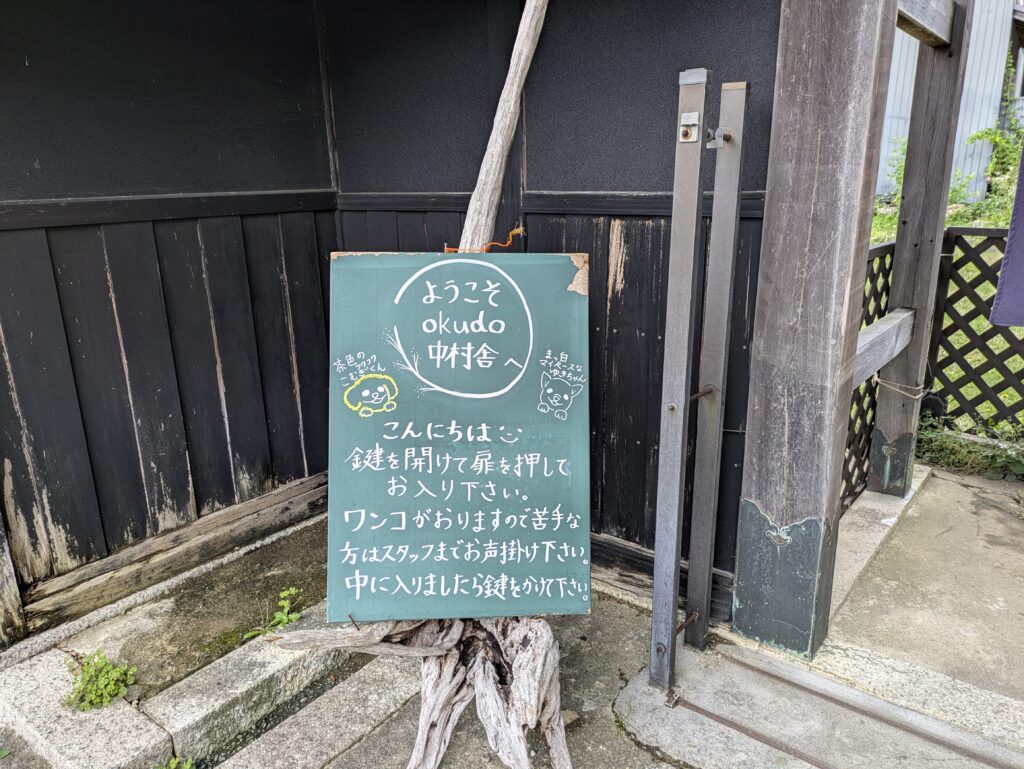 ようこそ
okudo
中村舎へ
茶色の
フワフワ
こむぎくん
まっ白
マイペースな
ゆきちゃん
こんにちは
鍵を開けて扉を押して
お入り下さい。
ワンコがおりますので苦手な
方はスタッフまでお声掛け下さい。
中に入りましたら鍵をかけて下さい。